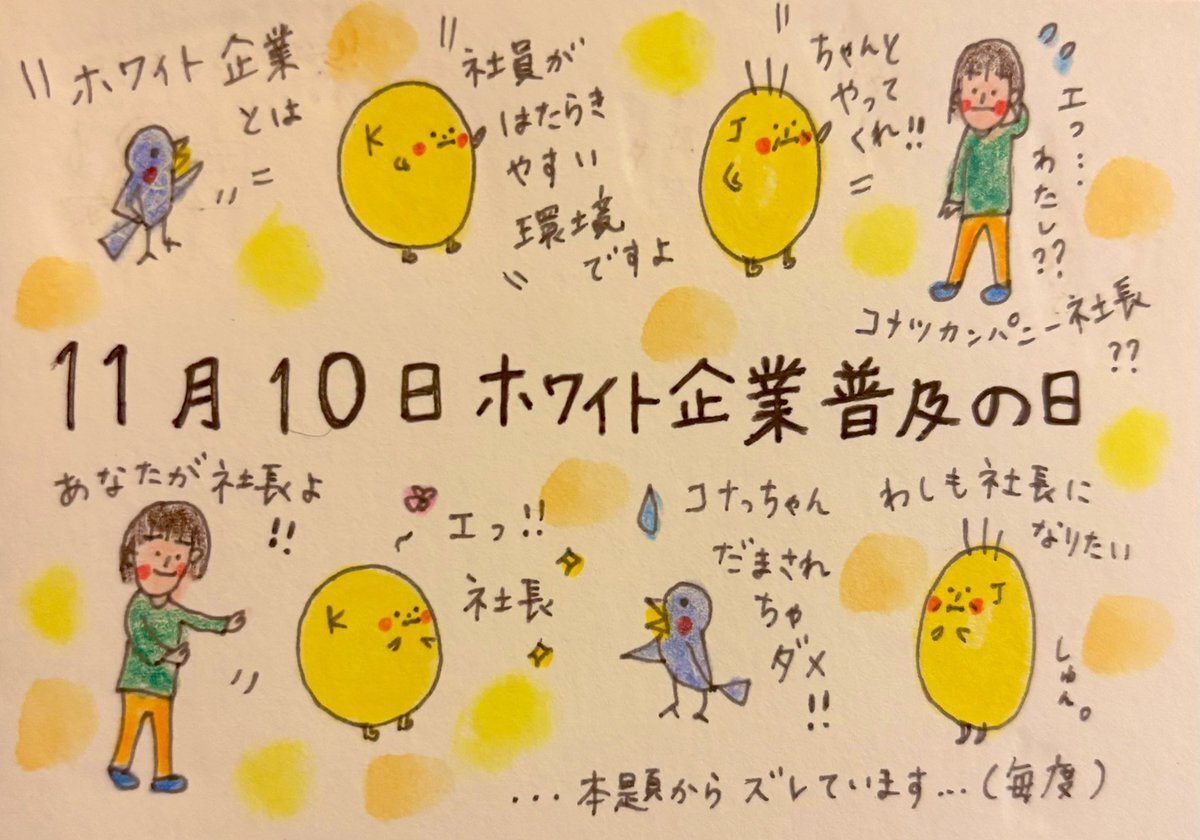 ホワイト企業
とは
K
社員が
はたらき
やすい
環境
ですよ
J
ちゃんと
やって
くれ!!
エっ...
わたし??
コナツカンパニー社長
??
11月10日ホワイト企業普及の日
あなたが社長よ
!!
K
エっ!!
社長
コナっちゃん
だまされ
ちゃ
ダメ
!!
わしも社長に
なりたい
J
しゅん。
...本題からズレています...(毎度)